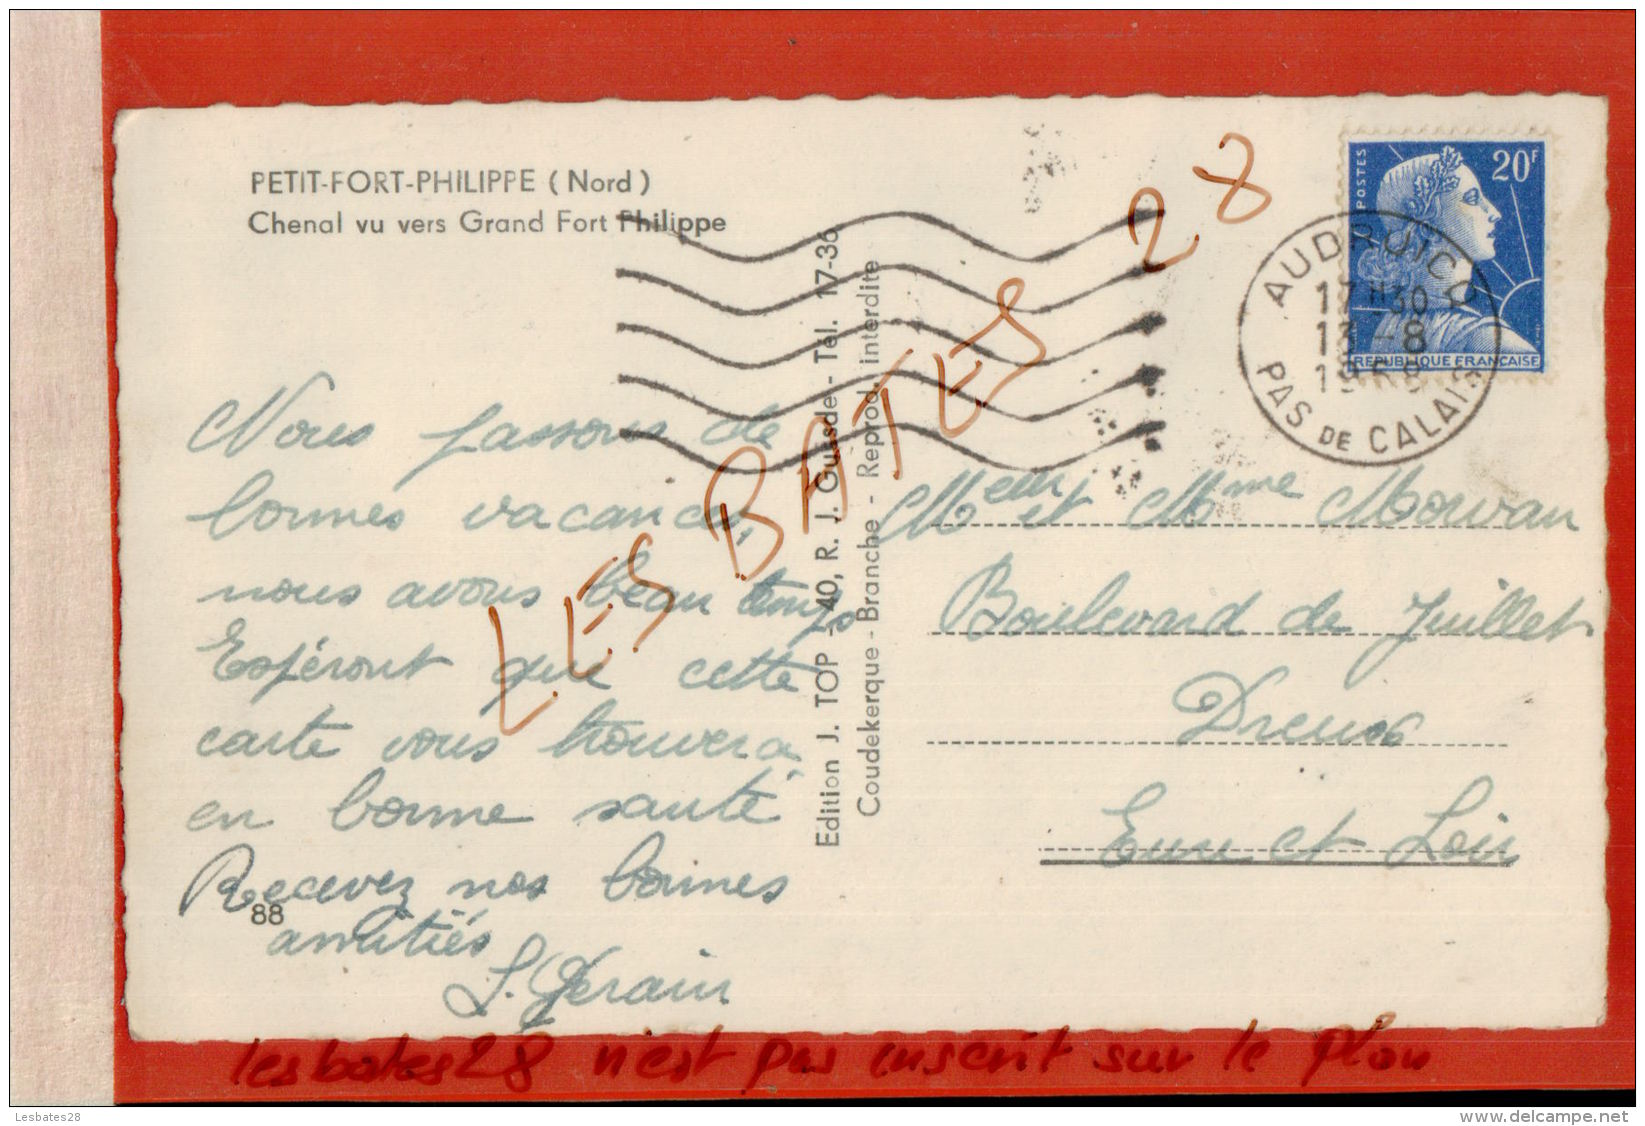 PETIT-FORT-PHILIPPE ( Nord )
Chenal vu vers Grand Fort Philippe
20F
POSTES
REPUBLIQUE FRANÇAISE
AUDRUICQ
17H30
13 -8
PAS DE CALAIS
Nous passons de
bonnes vacances,
nous avons beau temps
Espéront que cette
carte vous trouvera
en bonne santé
Recevez nos bonnes
amitiés
88
Edition J. TOP - 40, R. J. Guesde - Tél. 17-36
Coudekerque - Branche - Reprod. interdite
Meur et Mme Morvan
Boulevard de Juillet
Dreux
Eure et Loir
LES BATES 28
lesbates28 n'est pas inscrit sur le plan
Lesbates28
www.delcampe.net